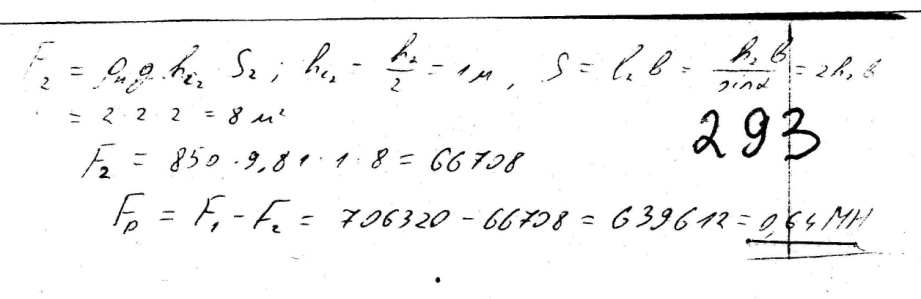 F₂ = ρₙ g h_c₂ · S₂ ; h_c₂ = h₂/2 = 1м , S = l₂ b = h₂ b/sinα = 2h₂ b
= 2 · 2 · 2 = 8 м²
293
F₂ = 850 · 9,81 · 1 · 8 = 66708
Fₚ = F₁ - F₂ = 706320 - 66708 = 639612 = 0,64 МН